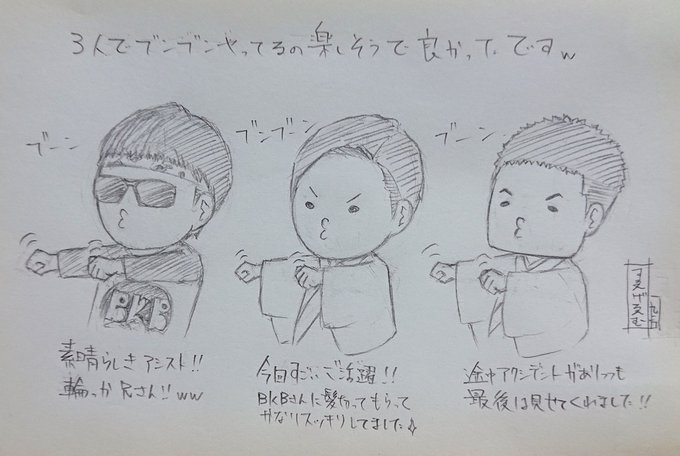 3人でブンブンやってるの楽しそうで良かったですw
ブーン
ブンブーン
ブーン
BKB
素晴らしきアシスト!!
輪っか兄さん!!ww
今回すごいご活躍!!
BKBさんに髪切ってもらって
かなりスッキリしてました☆
途中アクシデントがありつつも
最後は見せてくれました!!